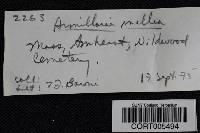 2263 Armillaria mellea
Mass, Amherst, Wildwood
Cemetery.
coll:
det: TJ. Baroni 19 Sept. 75
CORT005494